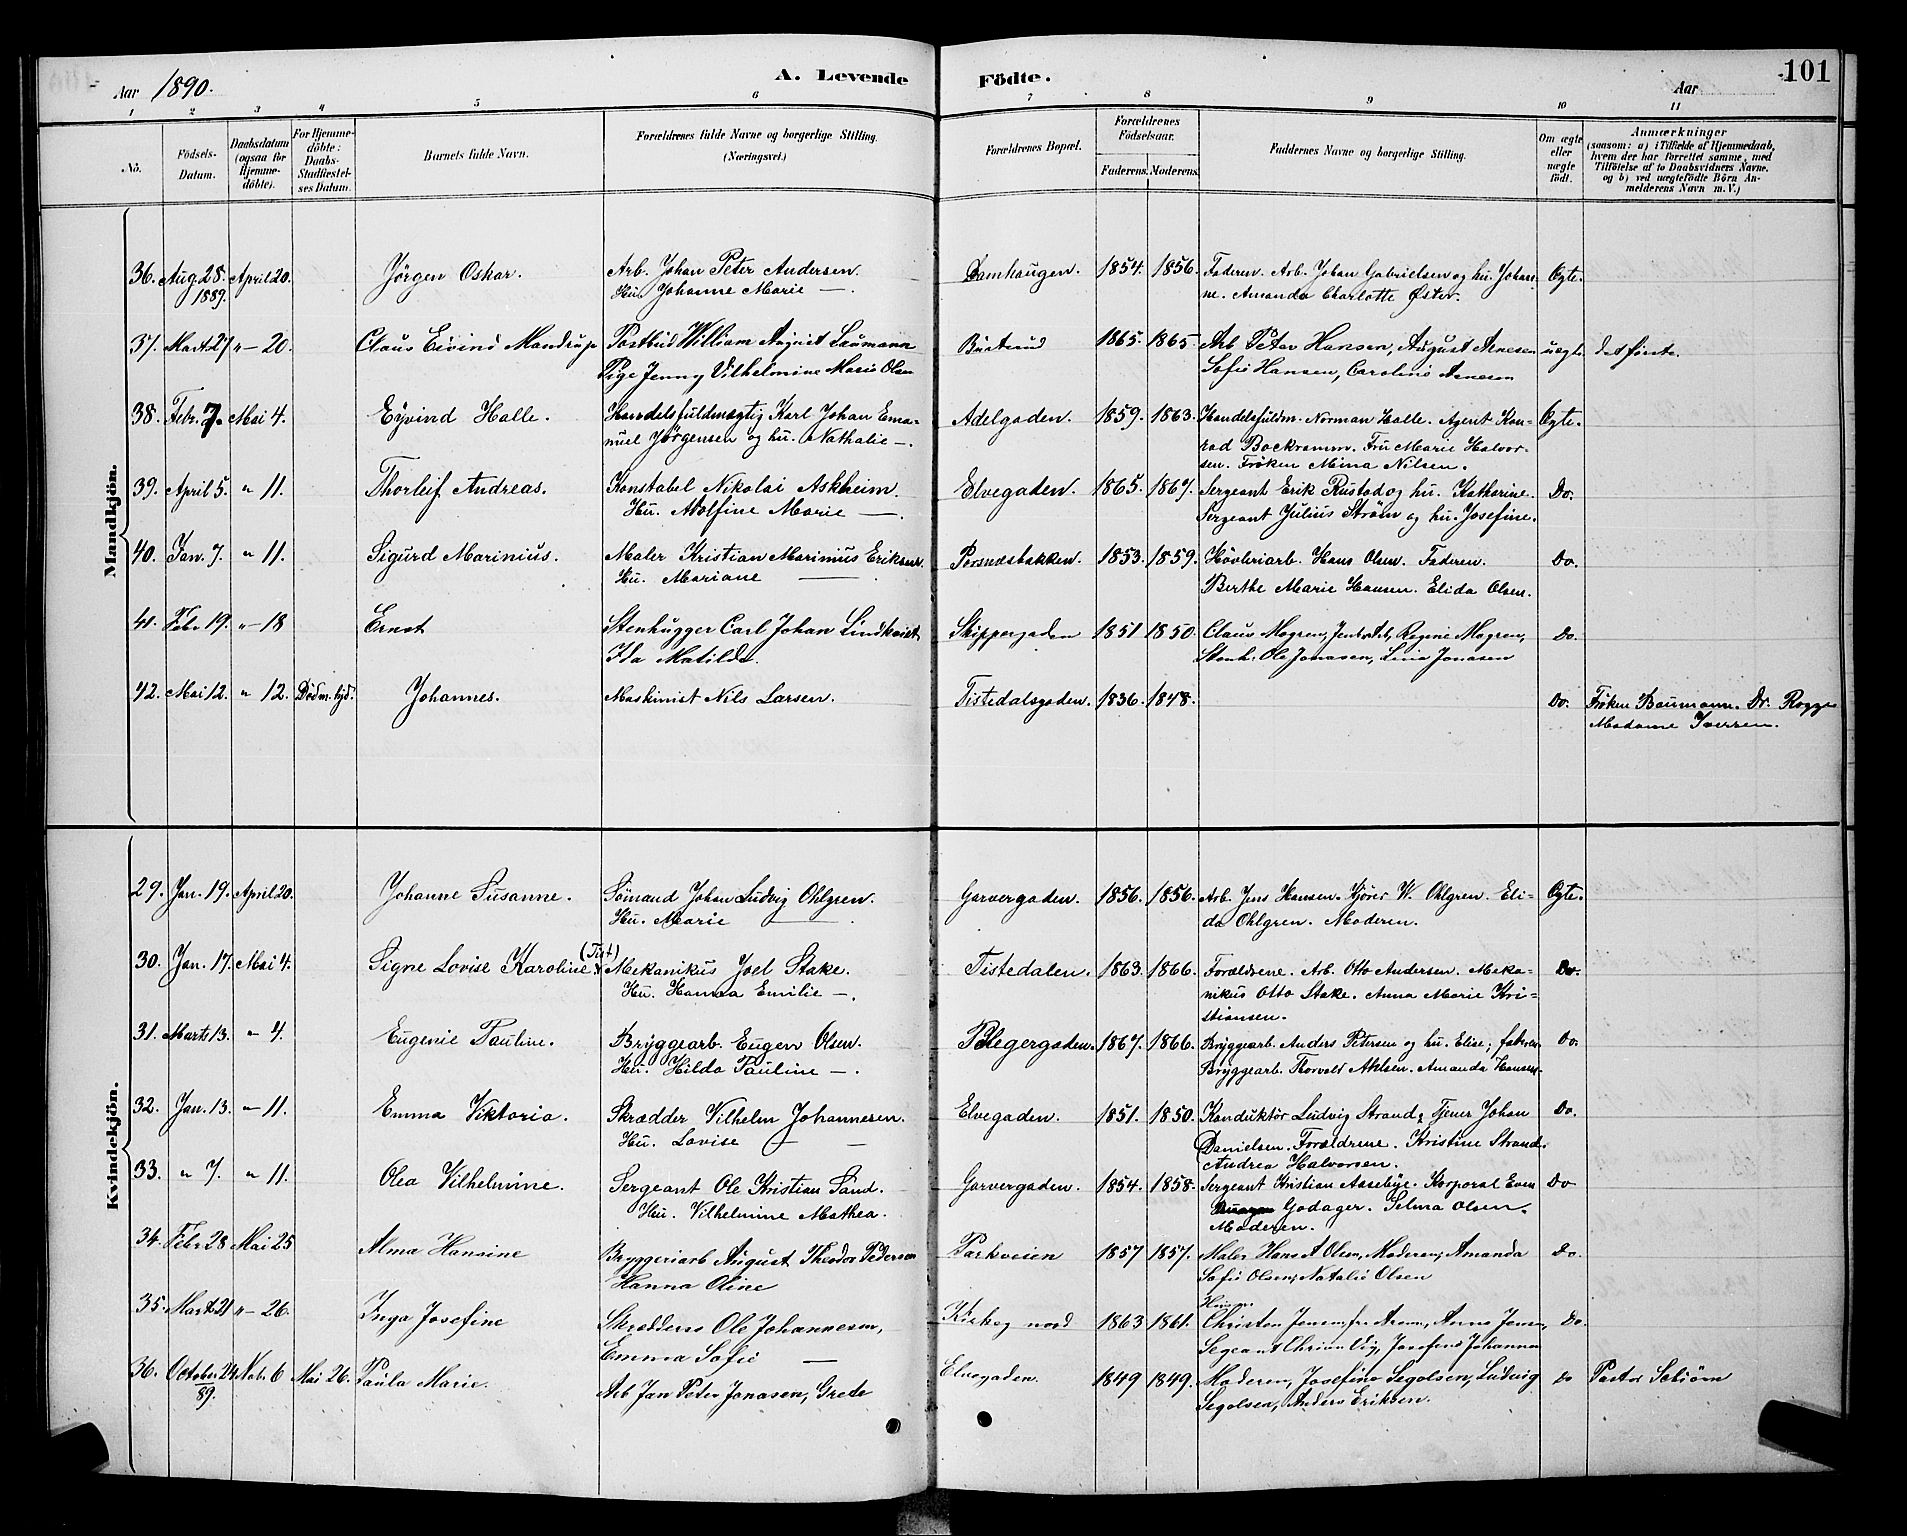 Aar 1890. A. Levende Födte. Aar 101
1 2 3 4 5 6 7 8 9 10 11
No. Födsels-Datum. Daabsdatum (ogsaa för Hjemmedöbte). For Hjemmedöbte: Daabs-Stadfæstelses Datum. Barnets fulde Navn. Forældrenes fulde Navne og borgerlige Stilling. (Næringsvei.) Forældrenes Bopæl. Forældrenes Födselsaar. Faderens. Moderens. Faddernes Navne og borgerlige Stilling. Om ægte eller uægte födt. Anmærkninger (saasom: a) i Tilfælde af Hjemmedaab, hvem der har forrettet samme, med Tilföielse af to Daabsvidners Navne, og b) ved uægtefödte Börn Anmelderens Navn m. V.)
Mandkjön.
36. Aug. 28. April 20. Jørgen Oskar. Arb. Johan Peter Andersen. Damhaugen. 1854. 1856. Faderen. Arb. Johan Gabrielsen og hu. Johan- Ægte.
1889. Hu. Johanne Marie —. ne. Amanda Charlotte Øster.
37. Marts 27 " – 20. Claus Eivind Mandrup Postbud William August Laumann Büstrud 1865. 1865 Arb Peter Hansen, August Arnesen uægte det første.
Pige Jenny Vilhelmine Marie Olsen Sofie Hansen, Caroline Arnesen
38. Febr. 7. Mai 4. Eyvind Halle. Handelsfuldmægtig Karl Johan Ema- Adelgaden. 1859. 1863. Handelsfuldm. Norman Halle. Agent Kon- Ægte.
nuel Jørgensen og hu. Nathalie —. rad Bockramm. Fru Marie Halvor-
sen. Frøken Mina Nilsen.
39. April 5. " 11. Thorleif Andreas. Konstabel Nikolai Askheim. Elvegaden. 1865. 1867. Sergeant Erik Rustad og hu. Katharine. Do.
Hu. Adolfine Marie —. Sergeant Julius Strøm og hu. Josefine.
40. Jan. 7. " 11. Sigurd Marinius. Maler Kristian Marinius Eriksen. Porsnæsbakken. 1853. 1859. Høvleriarb. Hans Olsen. Faderen. Do.
Hu. Mariane — Berthe Marie Hansen. Elida Olsen.
41. Febr 19. " – 18 Ernst Stenhugger Carl Johan Lindkvist Skippergaden 1851. 1850. Claus Mogren, Regine Mogren, Do.
Ida Matilde. Stenh. Ole Jonasen, Lina Jonasen
42. Mai 12. " 12. Dødm. tyd. Johannes. Maskinist Nils Larsen. Tistedalsgaden. 1836. 1848. Do. Frøken Baumann. Dr. Rogge
Madame Iversen.
Kvindekjön.
29. Jan. 19. April 20. Johanne Susanne. Sømand Johan Ludvig Ohlgren. Garvergaden. 1856. 1856. Arb. Jens Hansen. Kjører W. Ohlgren. Eli- Ægte.
Hu. Marie — da Ohlgren. Moderen.
30. Jan. 17. Mai 4. Signe Lovise Karoline (Tist) Mekanikus Joel Stake. Tistedalen. 1863. 1866. Forældrene. Arb. Otto Andersen. Meka- Do.
Hu. Hanna Emilie —. nikus Otto Stake. Anna Marie Kri-
stiansen.
31. Marts 13. " 4. Eugenie Pauline. Bryggearb. Eugen Olsen. Plegergaden. 1867. 1866. Bryggearb. Anders Petersen og hu. Elise; faderen Do.
Hu. Hilda Pauline —. Bryggearb. Thorvald Ahlsen. Amanda Hansen.
32. Jan. 13. " 11. Emma Viktoria. Skrædder Vilhelm Johannesen. Elvegaden. 1851. 1850. Konduktør Ludvig Strand, Tjener Johan Do.
Hu. Lovise — Danielsen. Forældrene. Kristine Strand.
Andrea Halvorsen.
33. " 7. " 11. Olea Vilhelmine. Sergeant Ole Kristian Sand. Garvergaden. 1854. 1858. Sergeant Kristian Aasebye. Korporal Even Do
Hu. Vilhelmine Mathea. Godager. Selma Olsen.
Moderen.
34. Febr 28 Mai 25 Alma Hansine Bryggeriarb August Theodor Pedersen Parkveien 1857 1857. Maler Hans A Olsen, Moderen, Amanda Do.
Hanna Oline Sofie Olsen, Natalie Olsen
35. Marts 21 " – 26. Inga Josefine Skrædders. Ole Johannesen, Kirkeg nord 1863 1861. Christen Jensen, Anne Jensen, Do.
Emma Sofie — Josefine Johannesen
36. October 24 Nov. 6 Mai 26. Paula Marie. Arb Jan Peter Jonasen, Grete Elvegaden. 1849 1849. Moderen, Josefine Segolsen, Ludvig Do Pastor Schiøm
89. Segolsen, Anders Eriksen.